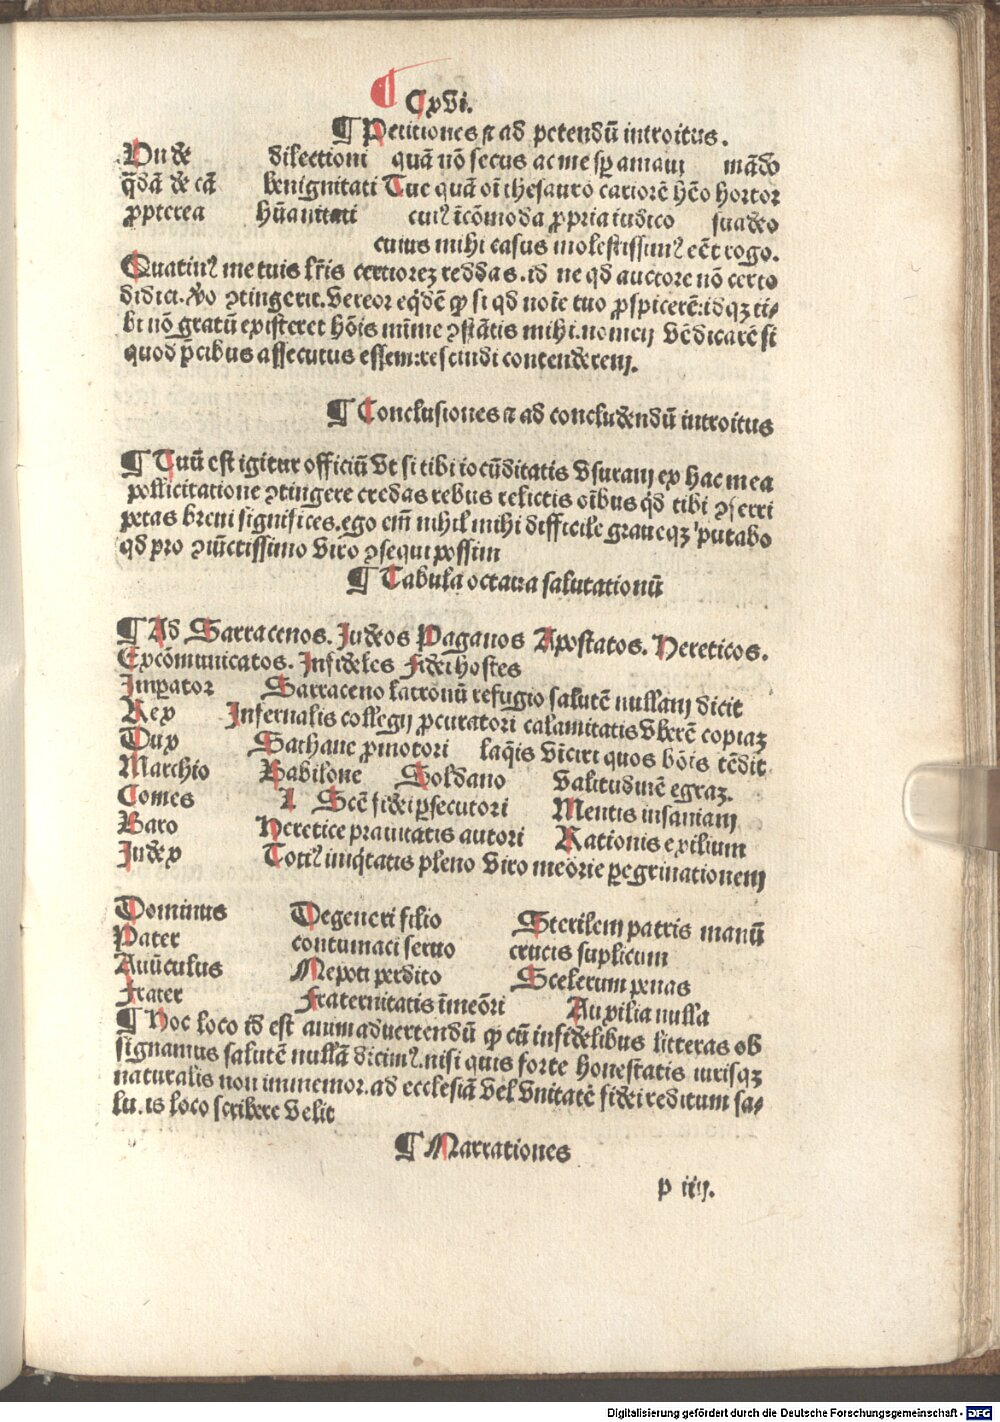 Cxvi.
¶ Petitiones ⁊ ad petendū introitus.
Vn̄ de dilectioni quā nō secus ac me sp̄ amaui mādo
q̄dā de cā benignitati Tue quā oī thesauro cariorē hēo hortor
ꝓpterea hūanitati cuiꝰ īcōmoda ꝓpria iudico suadeo
cuius mihi casus molestissimꝰ eēt rogo.
Quatinꝰ me tuis lr̄is certiorez reddas. id ne qd auctore nō certo
didici. ꝯtingerit. Vereor eq̄dē ꝙ si qd noīe tuo ꝓspicerē: idqꝫ ti⸗
bi nō gratū existeret hōis mīme ꝯstātis mihi. nomen vēdicarē si
quod p̄cibus assecutus essem: rescindi contenderem.
¶ Conclusiones ⁊ ad concludendū introitus
¶ Tuū est igitur officiū vt si tibi iocūditatis vsuram ex hac mea
pollicitatione ꝯtingere credas rebus relictis oībus qd tibi ꝯferri
petas breui significes. ego em̄ nihil mihi difficile graueqꝫ putabo
qd pro iūctissimo viro ꝯsequi possim
¶ Tabula octaua salutationū
¶ Ad Sarracenos. Iudeos Paganos Apostatos. Hereticos.
Excōmunicatos. Infideles fidei hostes
Imperator Sarraceno latronū refugio salutē nullam dicit
Rex Infernalis collegij ꝓcuratori calamitatis vberē copiaꝫ
Dux Sathane ꝓmotori laq̄is vīciri quos bōis tēdit
Marchio Babilone Soldano Valitudinē egraꝫ.
Comes A Scē fidei ꝑsecutori Mentis insaniam
Baro Heretice prauitatis autori Rationis exilium
Iudex Totiꝰ iniq̄tatis pleno viro meōrie ꝑegrinationem
Dominus Degeneri filio Sterilem patris manū
Pater contumaci seruo crucis suplicum
Auūculus Nepoti perdito Scelerum penas
Frater Fraternitatis īmeōri Auxilia nulla
¶ Hoc loco id est animaduertendū ꝙ cū infidelibus litteras ob
signamus salutē nullā dicimꝰ. nisi quis forte honestatis iurisqꝫ
naturalis non immemor. ad ecclesiā vel vnitatē fidei reditum sa⸗
lu. is loco scribere velit
¶ Narrationes
p iiij.
Digitalisierung gefördert durch die Deutsche Forschungsgemeinschaft - DFG